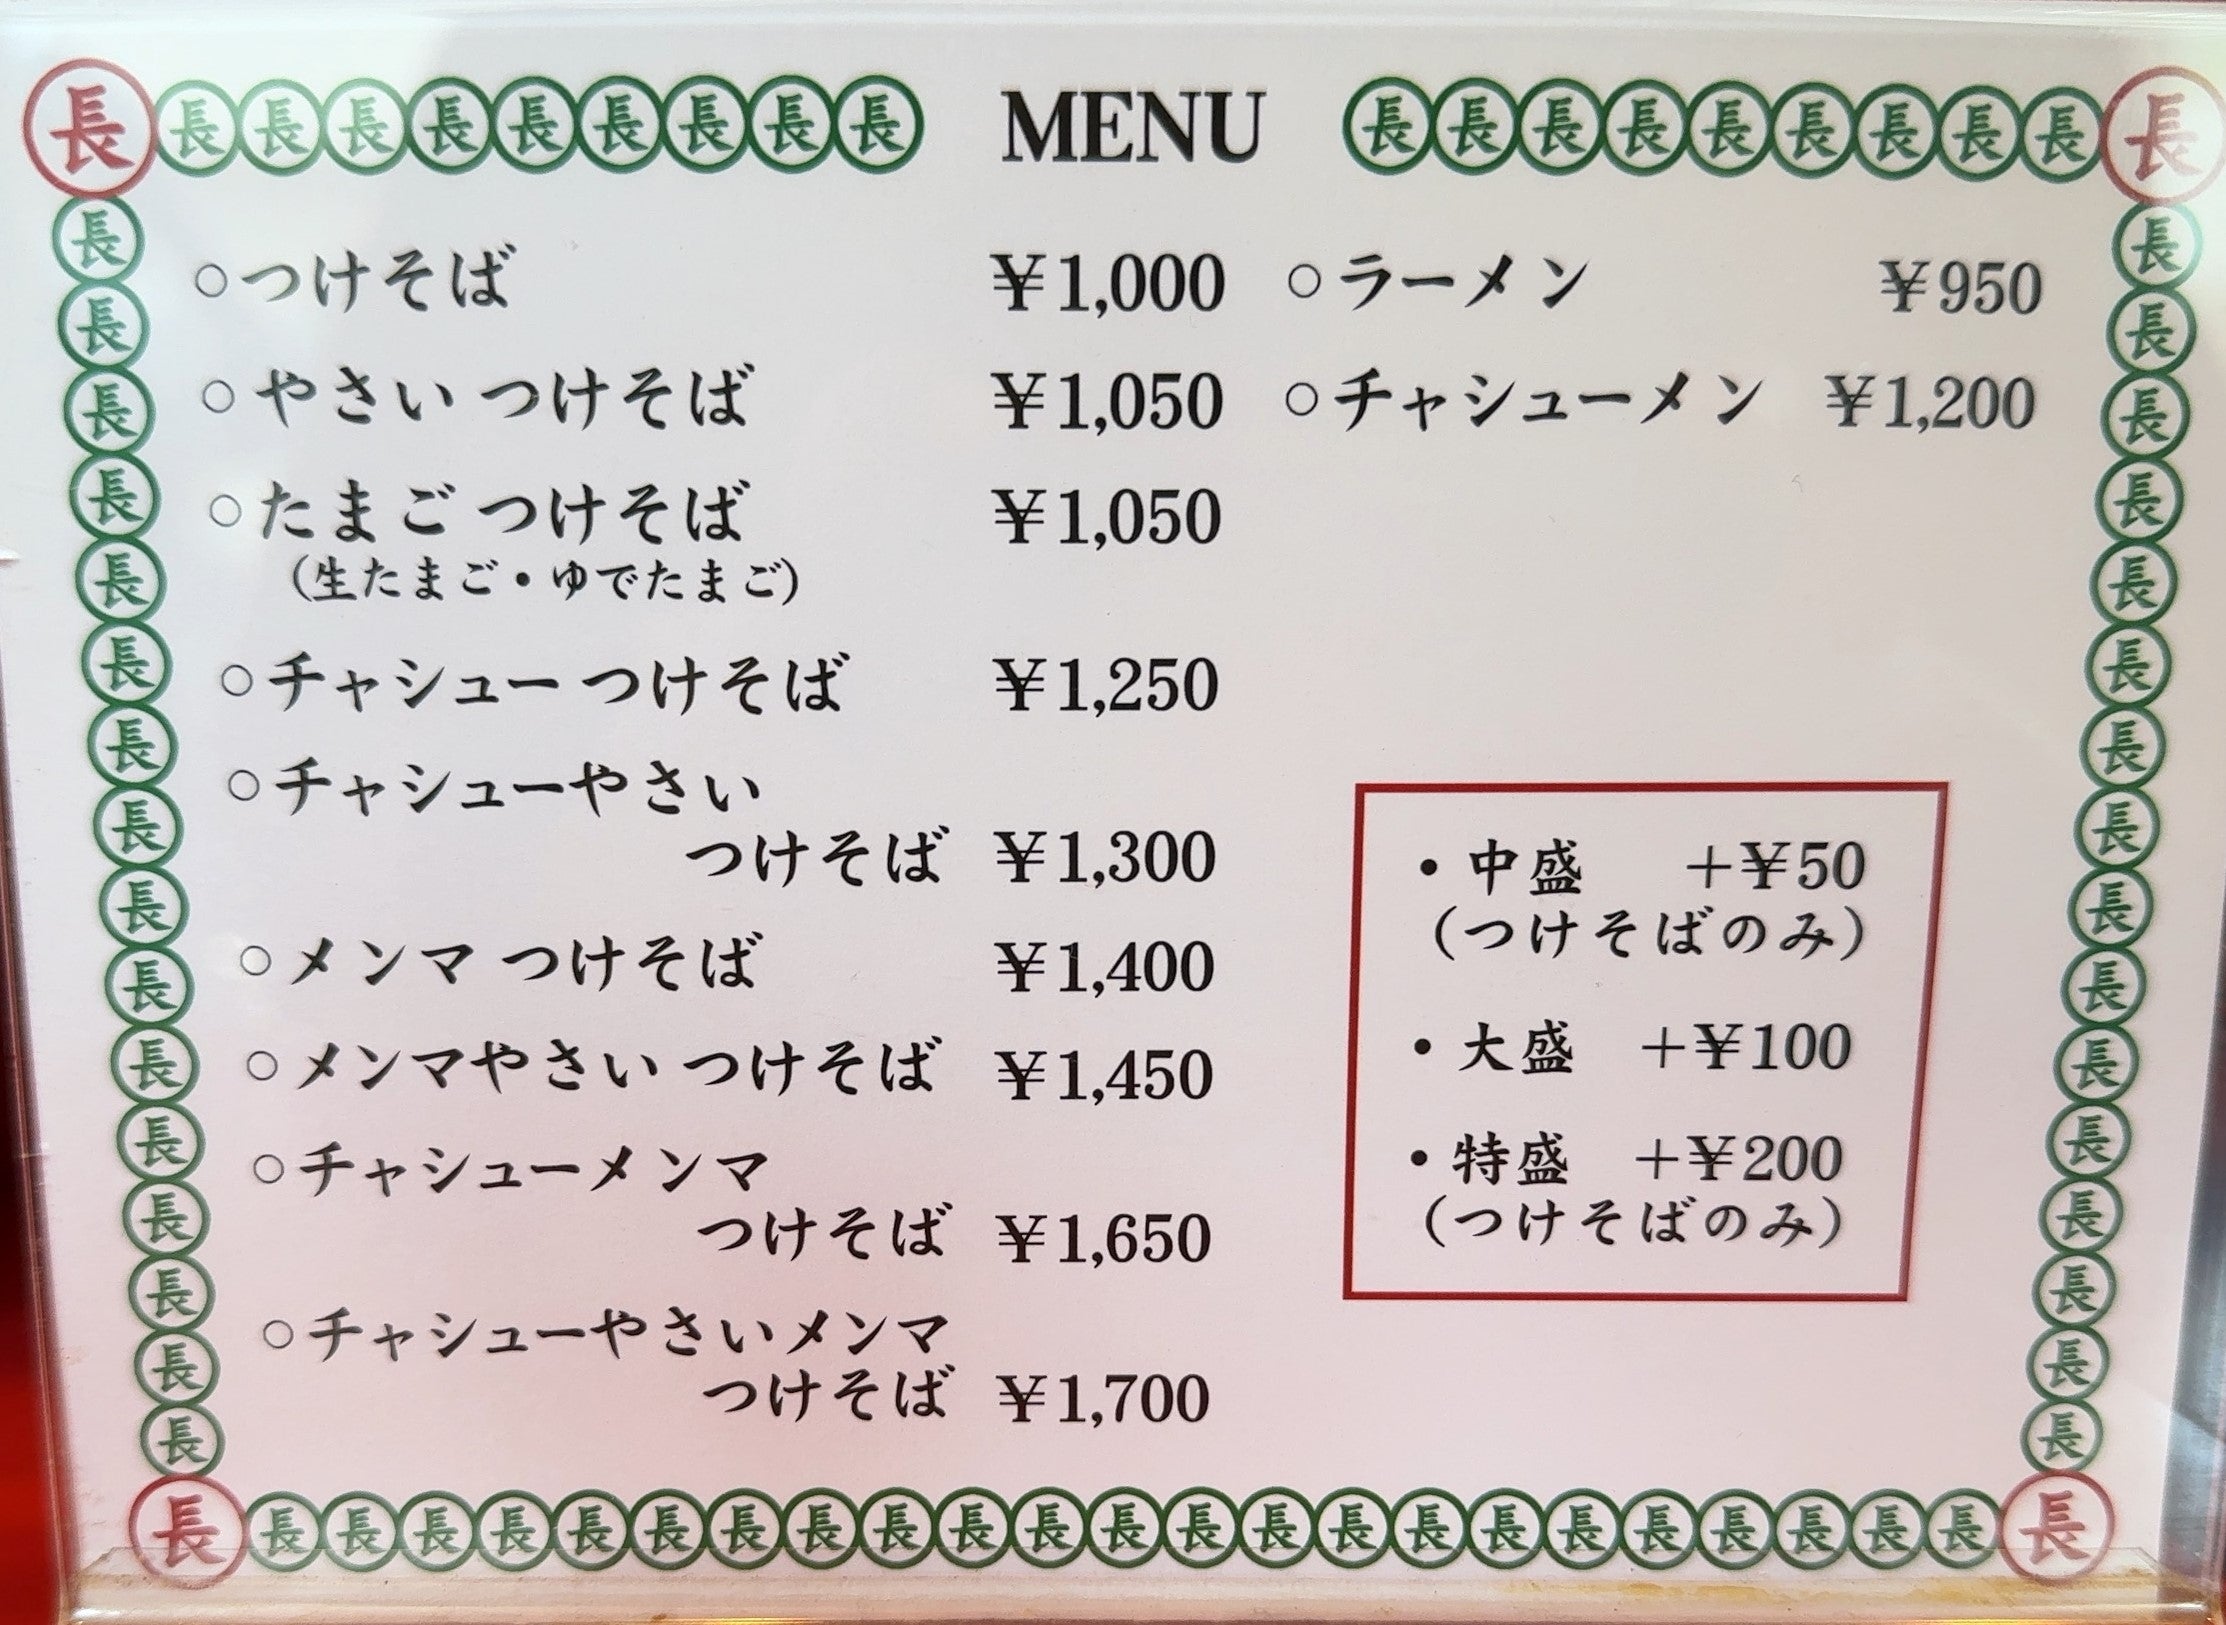 MENU
○つけそば ¥1,000
○やさい つけそば ¥1,050
○たまご つけそば ¥1,050
(生たまご・ゆでたまご)
○チャシュー つけそば ¥1,250
○チャシューやさい
つけそば ¥1,300
○メンマ つけそば ¥1,400
○メンマやさい つけそば ¥1,450
○チャシューメンマ
つけそば ¥1,650
○チャシューやさいメンマ
つけそば ¥1,700
○ラーメン ¥950
○チャシューメン ¥1,200
・中盛 +¥50
(つけそばのみ)
・大盛 +¥100
・特盛 +¥200
(つけそばのみ)
長